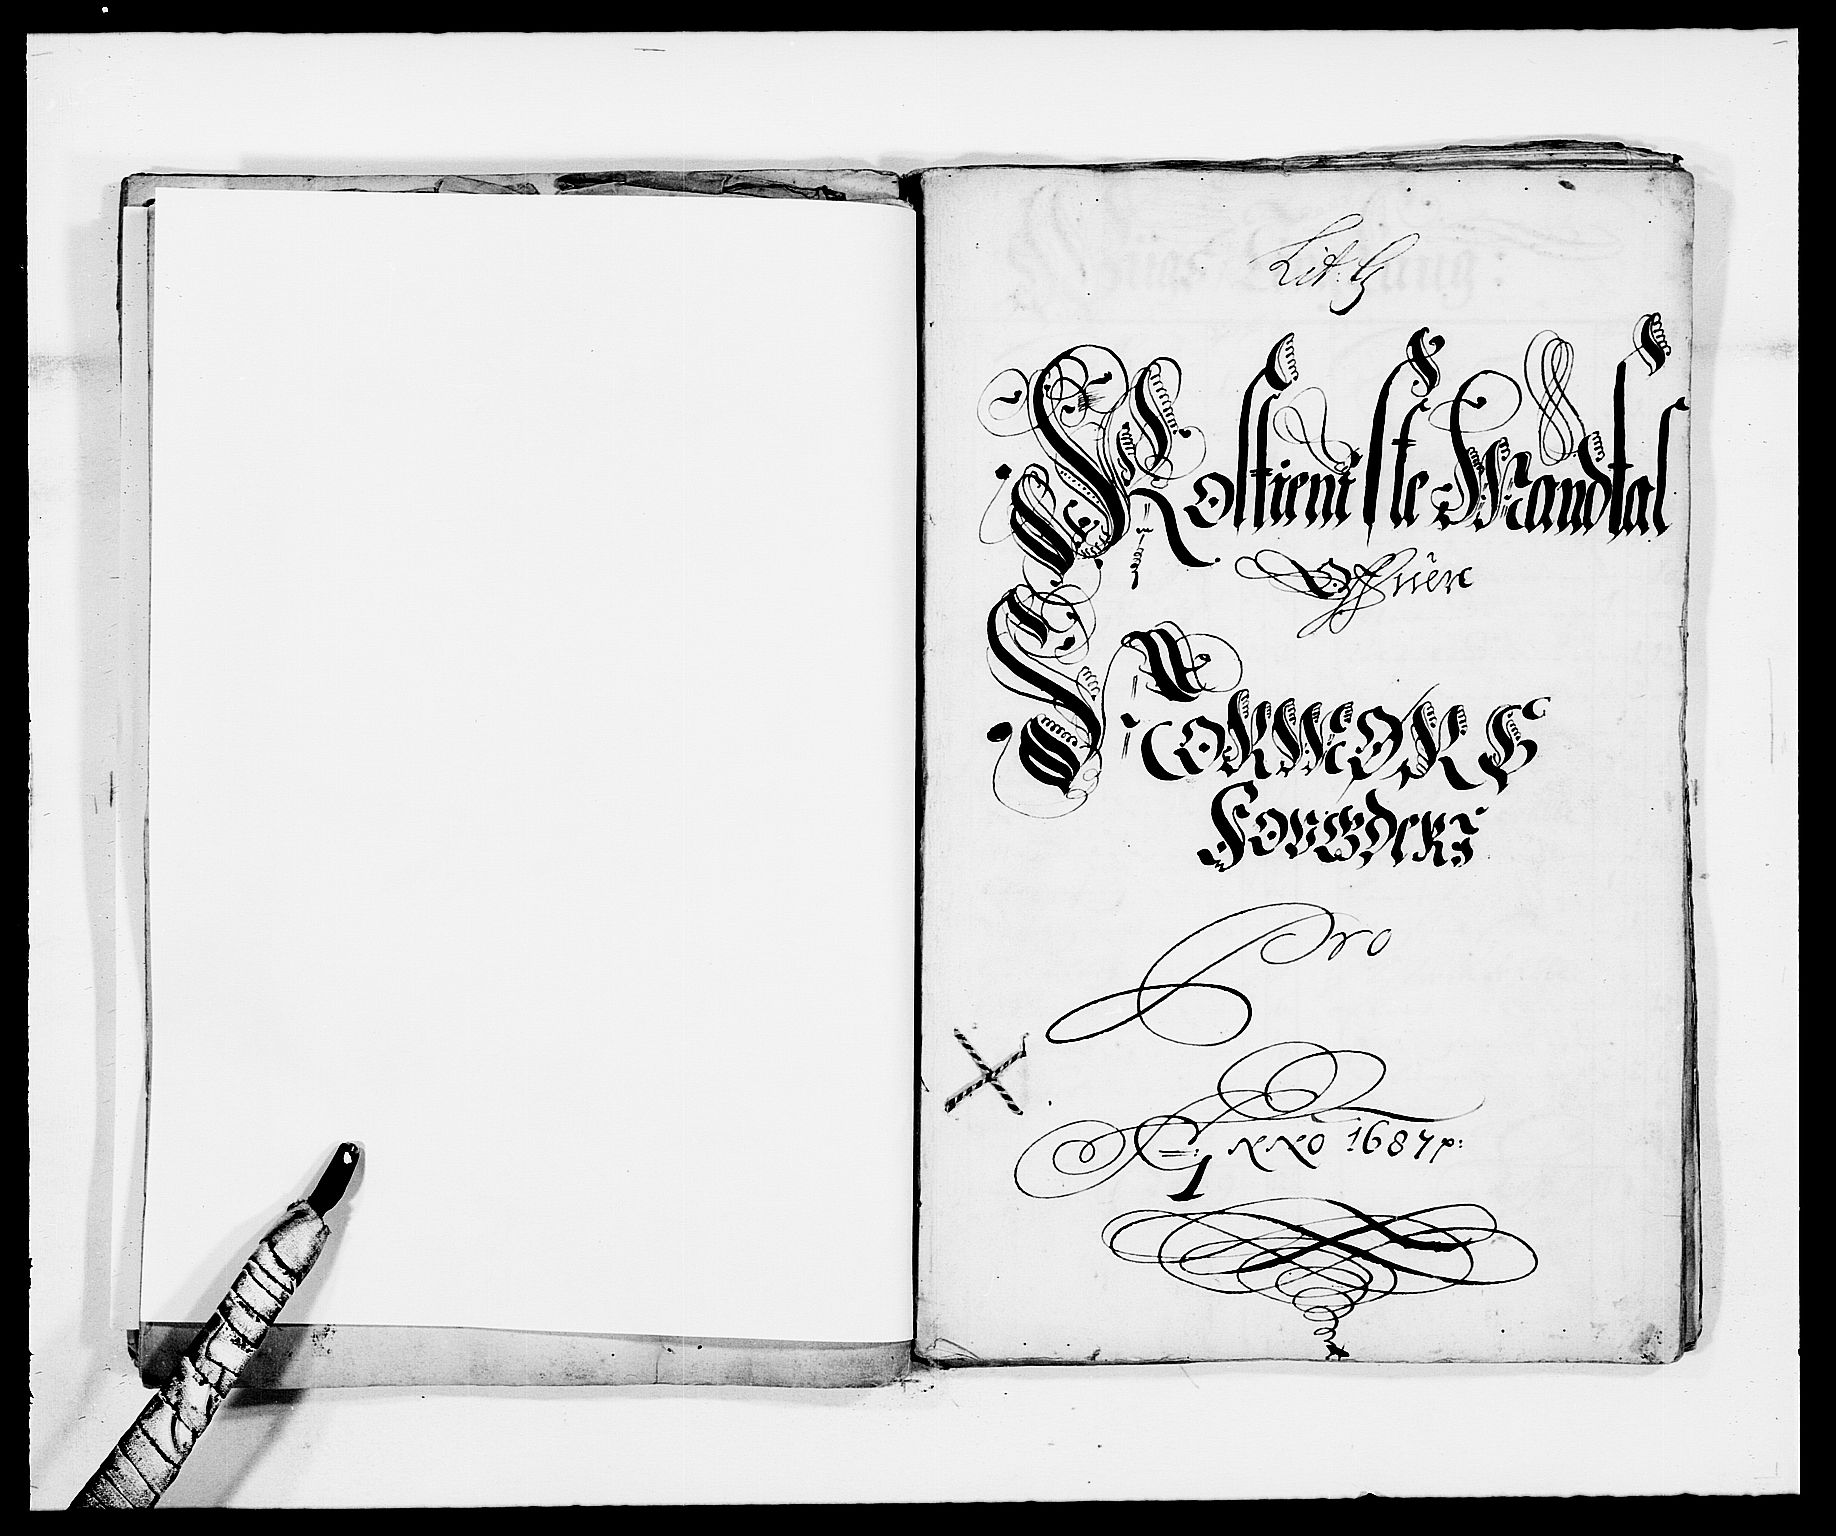 Lit. G
Rostieniste Mandtal
Offuer
NORDMØRS
FOVGDERJ
Pro
Anno 1687 p: